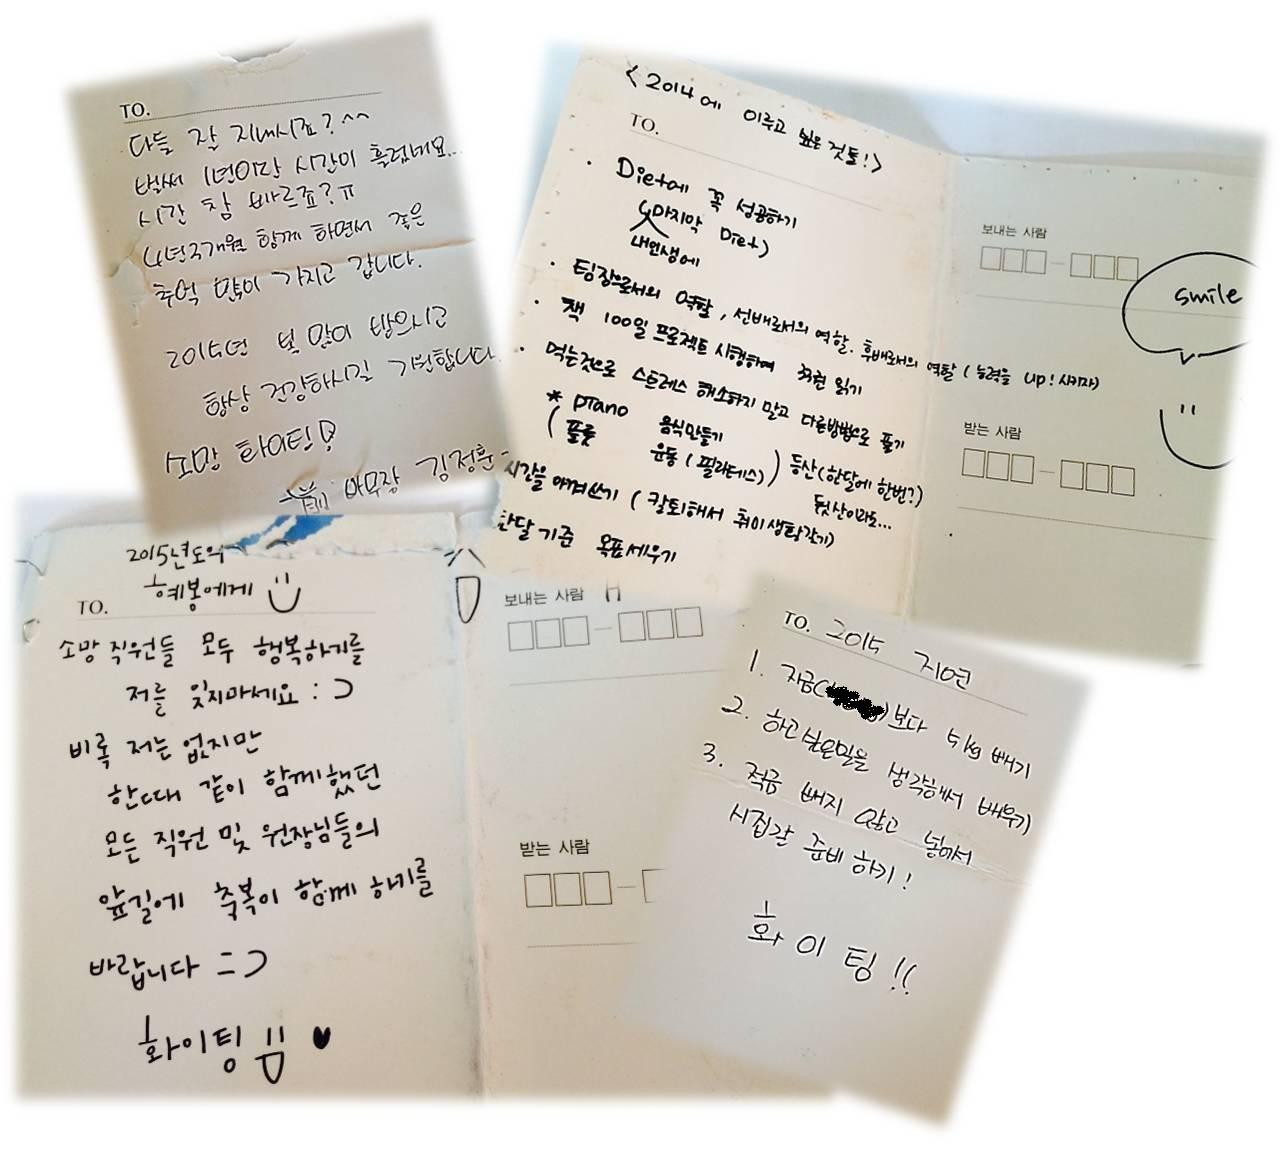 TO.
다들 잘 지내시죠? ^^
벌써 1년이란 시간이 흘렀네요..
시간 참 빠르죠? ㅠ
4년 3개월 함께 하면서 좋은
추억 많이 가지고 갑니다.
2015년 복 많이 받으시고
항상 건강하시길 기원합니다
소망 화이팅!
김정훈
<2014에 이루고 싶은 것들!>
TO.
· Diet에 꼭 성공하기
(마지막 Diet)
내인생에
· 팀장으로서의 역할, 선배로서의 역할. 후배로서의 역할 (능력을 up! 시키자)
· 책 100일 프로젝트 시행하여 권 읽기
· 먹는것으로 스트레스 해소하지 말고 다른방법으로 풀기
* piano 음식만들기
(플룻 운동 (필라테스)) 등산 (한달에 한번?)
뒷산이라도...
시간을 아껴쓰기 (칼퇴해서 취미생활갖기)
한달기준 목표세우기
보내는 사람
smile
받는 사람
2015년도의
혜봉에게
TO.
소망 직원들 모두 행복하기를
저를 잊지마세요 :)
비록 저는 없지만
한때 같이 함께했던
모든 직원 및 원장님들의
앞길에 축복이 함께 하기를
바랍니다 =)
화이팅 ♥
보내는 사람
받는 사람
TO. 2015 지연
1. 지금( )보다 5kg 빼기
2. 하고싶은일을 생각해서 배우기
3. 적금 빼지 않고 넣어서
시집갈 준비 하기!
화이팅!!